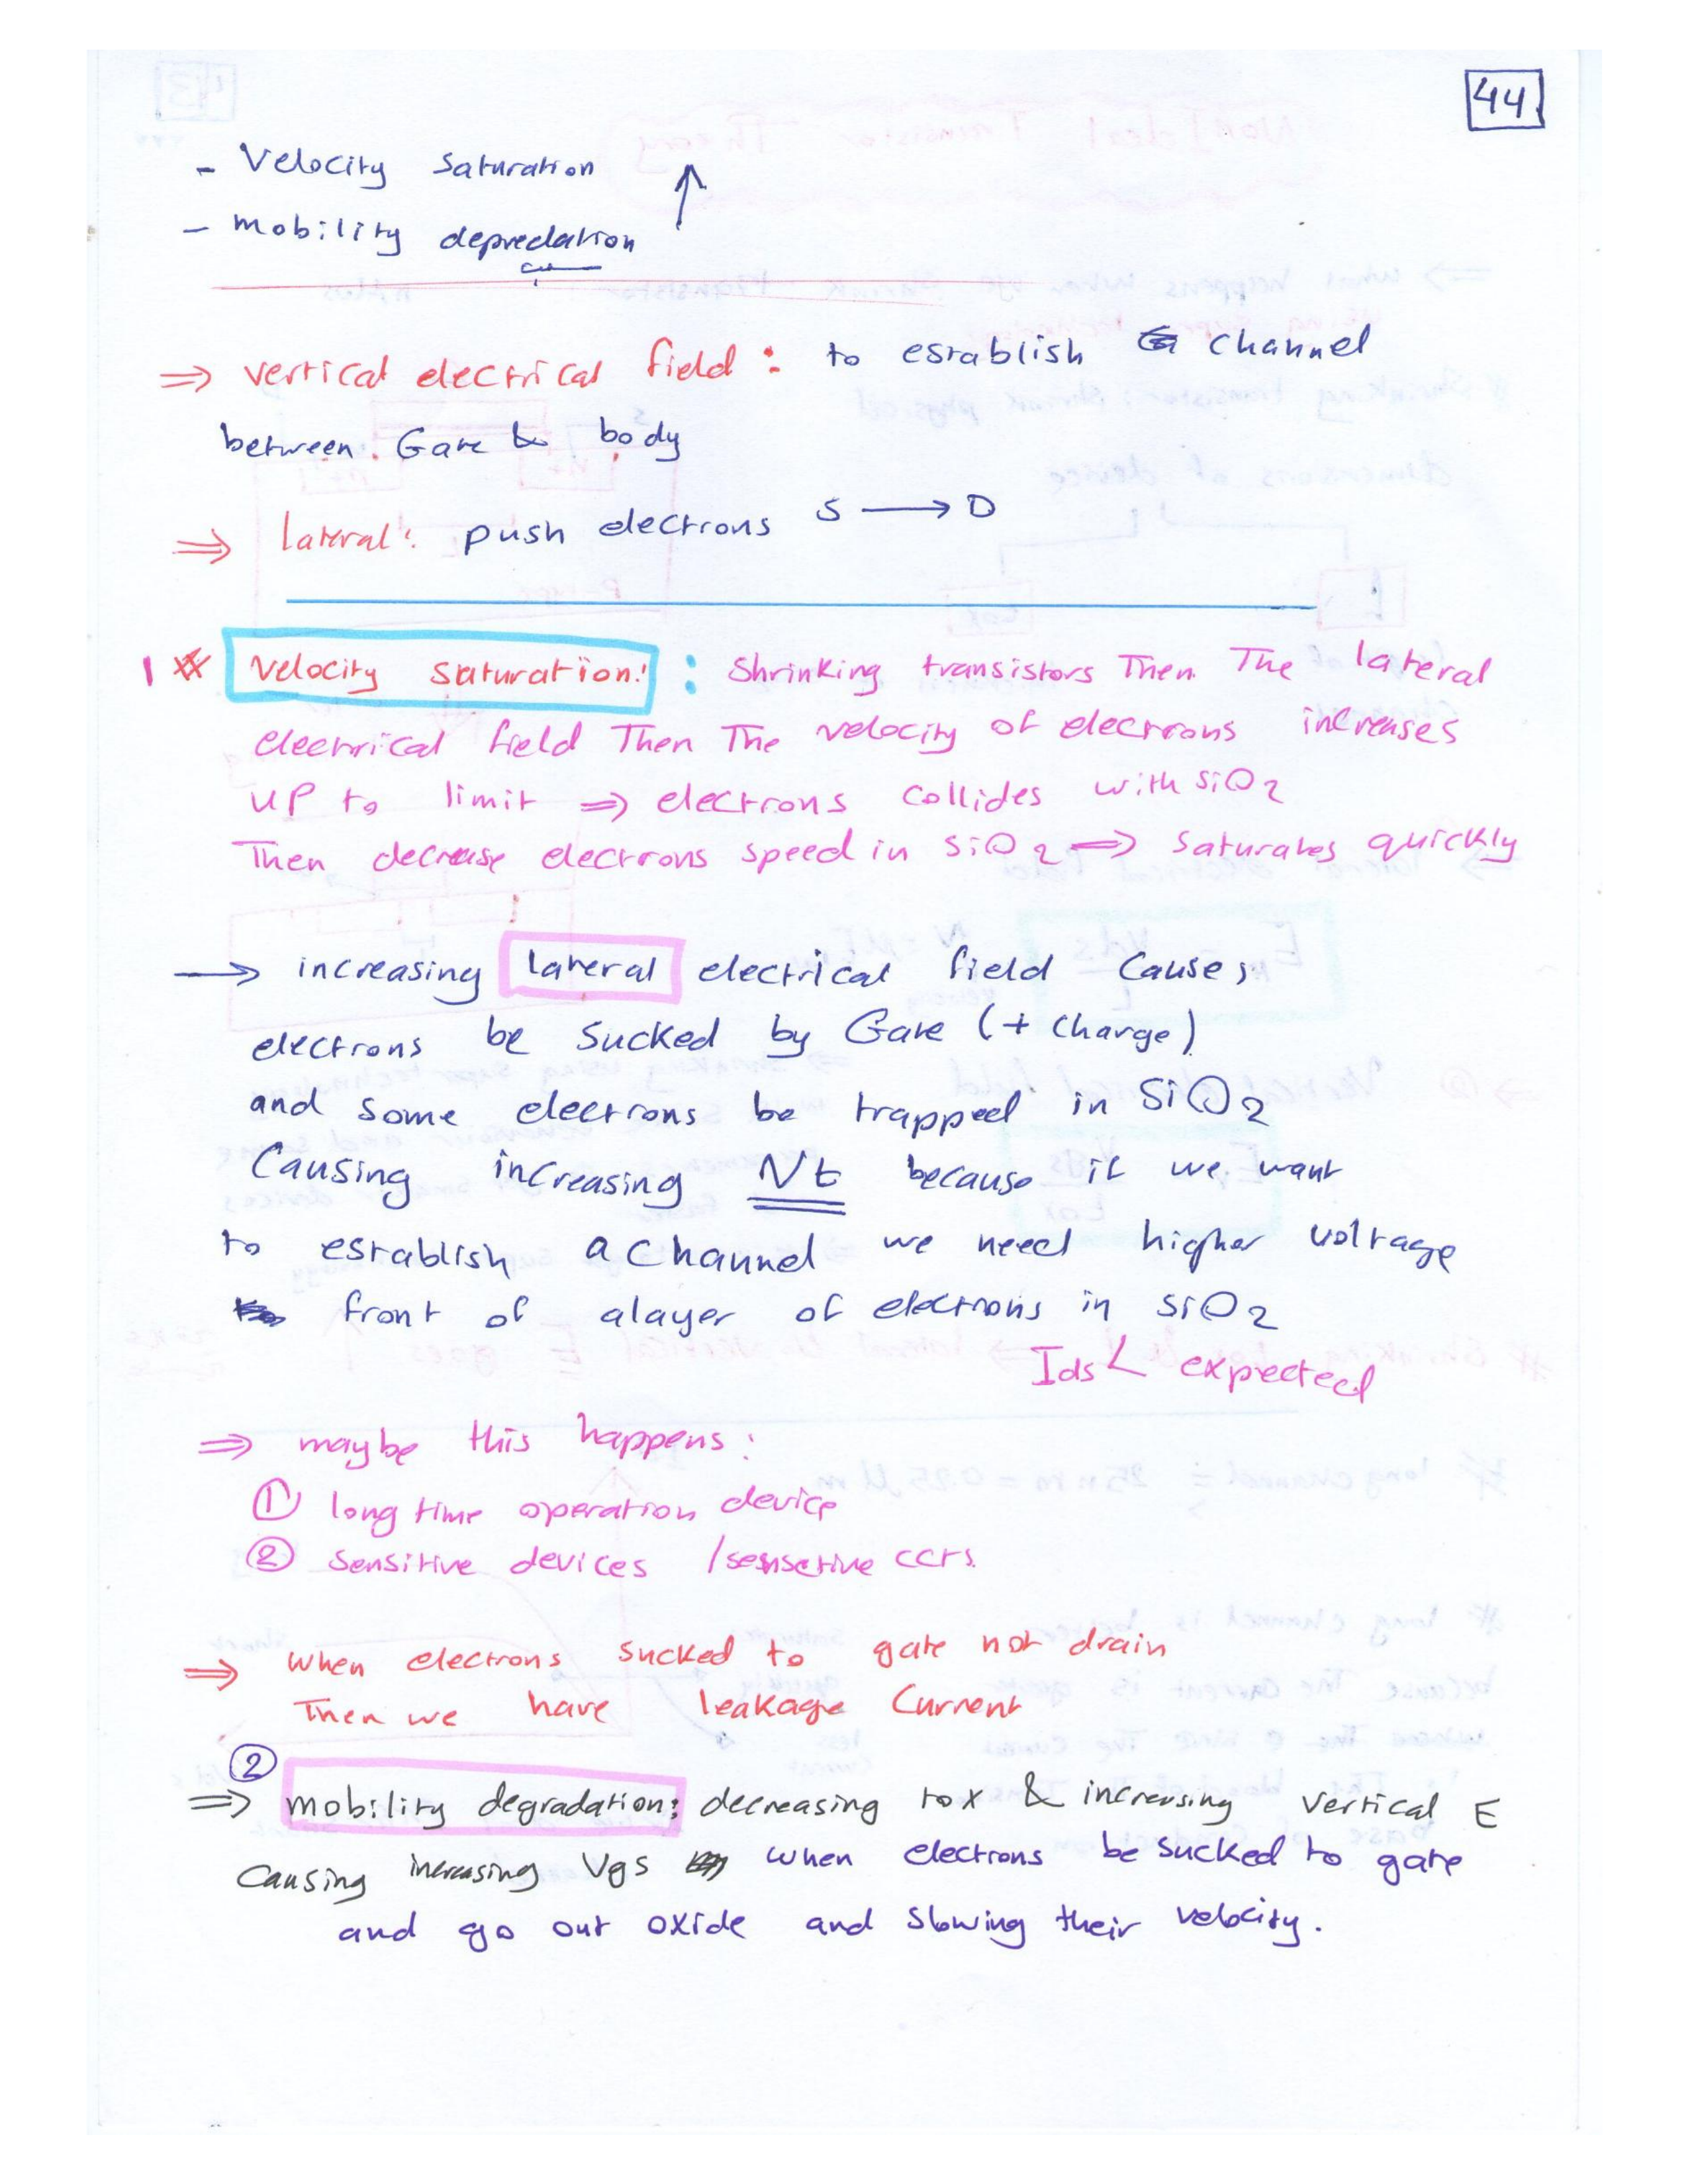 44
- Velocity Saturation ↑
- mobility depredation
⇒ vertical electrical field : to establish channel
between Gate & body
⇒ lateral: push electrons S → D
1 * Velocity saturation: : Shrinking transistors Then The lateral
electrical field Then The velocity of electrons increases
UP to limit ⇒ electrons collides with SiO2
Then decrease electrons speed in SiO2 ⇒ saturates quickly
→ increasing lateral electrical field Causes
electrons be Sucked by Gate (+ charge)
and some electrons be trapped in SiO2
Causing increasing Nt because if we want
to establish a channel we need higher voltage
front of a layer of electrons in SiO2
Ids < expected
⇒ maybe this happens:
① long time operation device
② Sensitive devices / sensetive ccts.
⇒ when electrons sucked to gate not drain
Then we have leakage Current
②
⇒ mobility degradation: decreasing tox & increasing vertical E
Causing increasing Vgs when electrons be sucked to gate
and go out oxide and slowing their velocity.